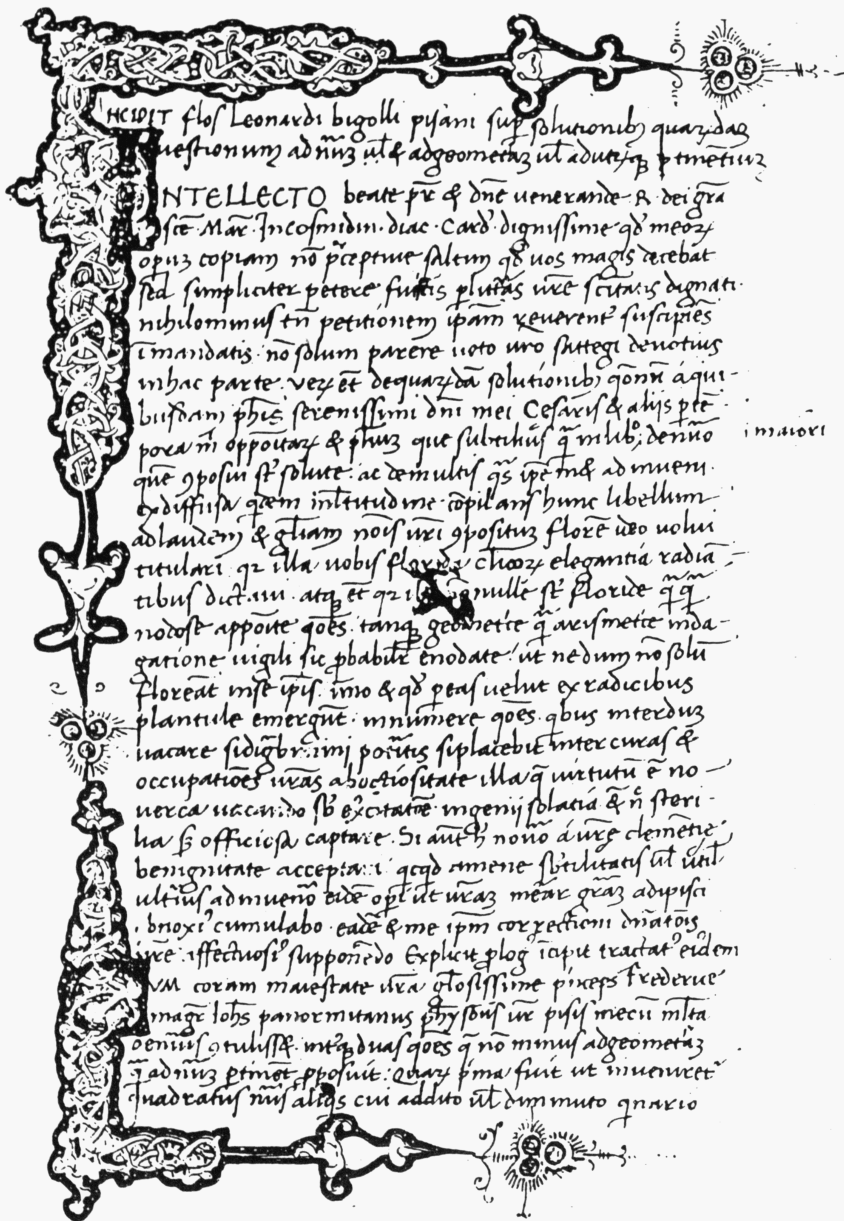 INCIPIT flos Leonardi bigolli pisani sup̄ solutionibꝫ quarūdaꝫ
questionum ad nūꝫ ul̄ & ad geometāꝫ ul̄ ad utrūqꝫ ptinētiuꝫ
INTELLECTO beate pr̄ & dn̄e venerande R. dei gr̄a
sc̄e Mar̄ In cosmidin. diac. Card̄ dignissime qd̄ meoꝝ
opuꝫ copiam nō p̄ceptiue saltim qd̄ uos magis decebat
sed simpliciter petere p̄ lr̄ās ur̄e sc̄itatis dignati
nihilominus tn̄ petitionem ip̄am reuerent̄ suscipiēs
ī mandatis. nō solum parere uoto ur̄o sattegi deuotius
in hac parte. verꝫ et̄ de quarūdā solutionibꝫ qōnū a qui-
busdam ph̄is serenissimi dn̄i mei Cesaris & alijs p̄ tē-
pora m̄ oppōitaꝝ & pl̄iuꝫ que subtilius q̄ in libꝫ de nūo
i maiori
que ꝯposui st̄ solute. ac de multis q̄s ip̄emet adinueni.
ex diffusa qdem ml̄titudine cōpilans hunc libellum
ad laudem & gl̄iam nōis uri ꝯpositum florē ideo uolui
titulari qꝛ illa uobis florida clīcoꝝ elegantia radiā-
tibus dictaui. atqꝫ et̄ qꝛ nonnulle st̄ floride q̄q̄
nodose appōite qōes. tanqꝫ geometrie q̄ arismetrice inda-
gatione uigili sic p̄babilr̄ enodate. ut nedum nō solū
floreāt in se ip̄is. imo & qd̄ p̄ eas uelut ex radicibus
plantule emergūt. innumere qōes. qbus interduꝫ
uacare si placebit inter curas &
occupatiōes ur̄as ab otiositate illa q̄ uirtutū ē no-
uerca uacando sb̄ exercitatōe ingenij solatia & n̄ steri-
lia sꝫ officiosa captare. Si aut̄ h̄ a ur̄e clemētie
benignitate accepta qcqd amene sb̄tilitatis ul̄ util̄
ulterius adinuenō eidē opi ut ur̄aꝫ mear̄ gr̄aꝫ adipisci
obnoxiꝰ cumulabo. eadē & me ip̄m correctioni dn̄atōis
ur̄e affectuosiꝰ supponēdo Explicit p̄logꝰ īcipit tractatꝰ eiꝰdem
CUM coram maiestate ur̄a gl̄osissime p̄nceps Frederice
magr̄ Ioh̄s panormitanus ph̄ysophus ur̄ pisis mecū ml̄ta
de nūis ꝯtulisset. interqꝫ duas qōes q̄ nō minus ad geometāꝫ
q̄ ad nūꝫ p̄tinet p̄posuit. Quaꝝ p̄ma fuit ut inueniret̄
quadratus nūs aliqs cui addito ul̄ diminuto qnario